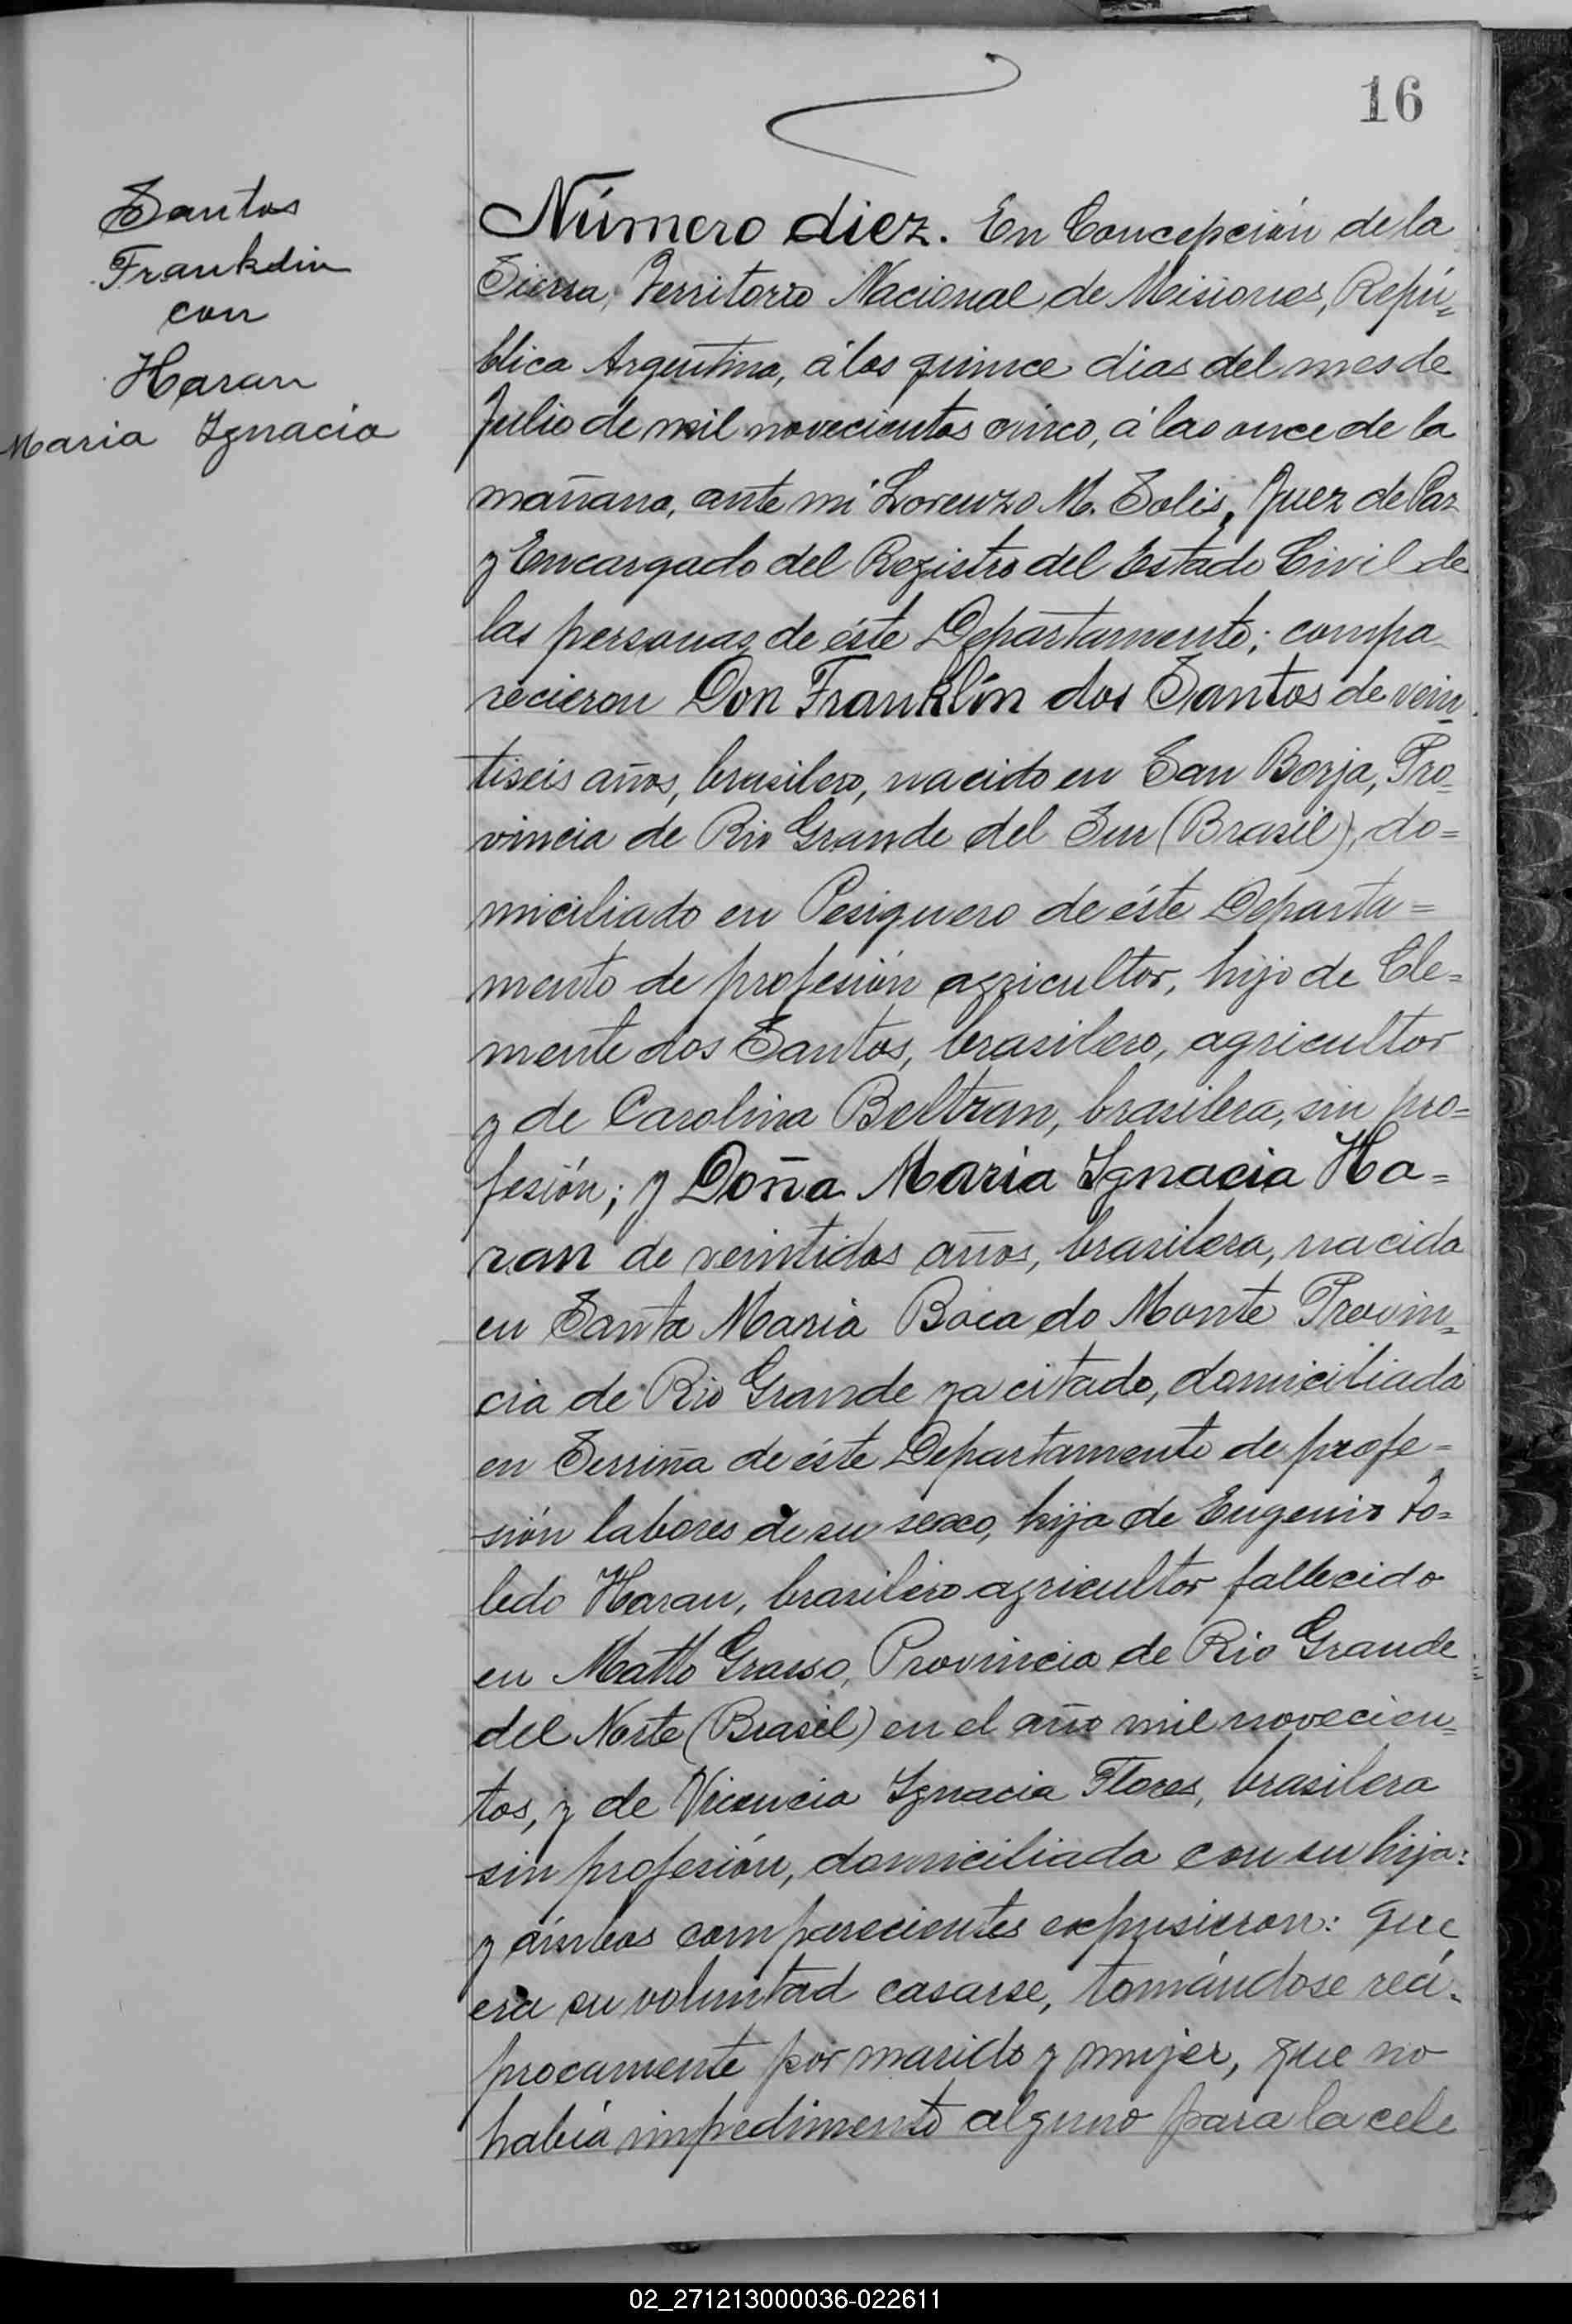 16
Santos
Franklin
con
Haran
Maria Ignacia
Número diez. En Concepción de la
Sierra, Territorio Nacional de Misiones, Repú=
blica Argentina, á los quince dias del mes de
Julio de mil novecientos cinco, á las once de la
mañana, ante mi Lorenzo M. Solis, Juez de Paz
y Encargado del Registro del Estado Civil de
las personas de éste Departamento; compa-
recieron Don Franklín dos Santos de vein
tiseis años, brasilero, nacido en San Borja, Pro=
vincia de Rio Grande del Sur (Brasil), do=
miciliado en Pesiguero de éste Departa=
mento de profesión agricultor, hijo de Cle=
mente dos Santos, brasilero, agricultor
y de Carolina Beltran, brasilera, sin pro=
fesión; y Doña Maria Ignacia Ha=
ran de veintidos años, brasilera, nacida
en Santa Maria Boca do Monte Provin=
cia de Rio Grande ya citado, domiciliada
en Serriña de éste Departamento de profe=
sión labores de su sexo, hija de Eugenio To=
ledo Haran, brasilero agricultor fallecido
en Matto Grasso, Provincia de Rio Grande
del Norte (Brasil) en el año mil novecien=
tos, y de Vicencia Ignacia Flores, brasilera
sin profesión, domiciliada con su hija:
y ámbos comparecientes expusieron: que
era su voluntad casarse, tomándose recí-
procamente por marido y mujer, que no
había impedimento alguno para la cele
02_271213000036-022611